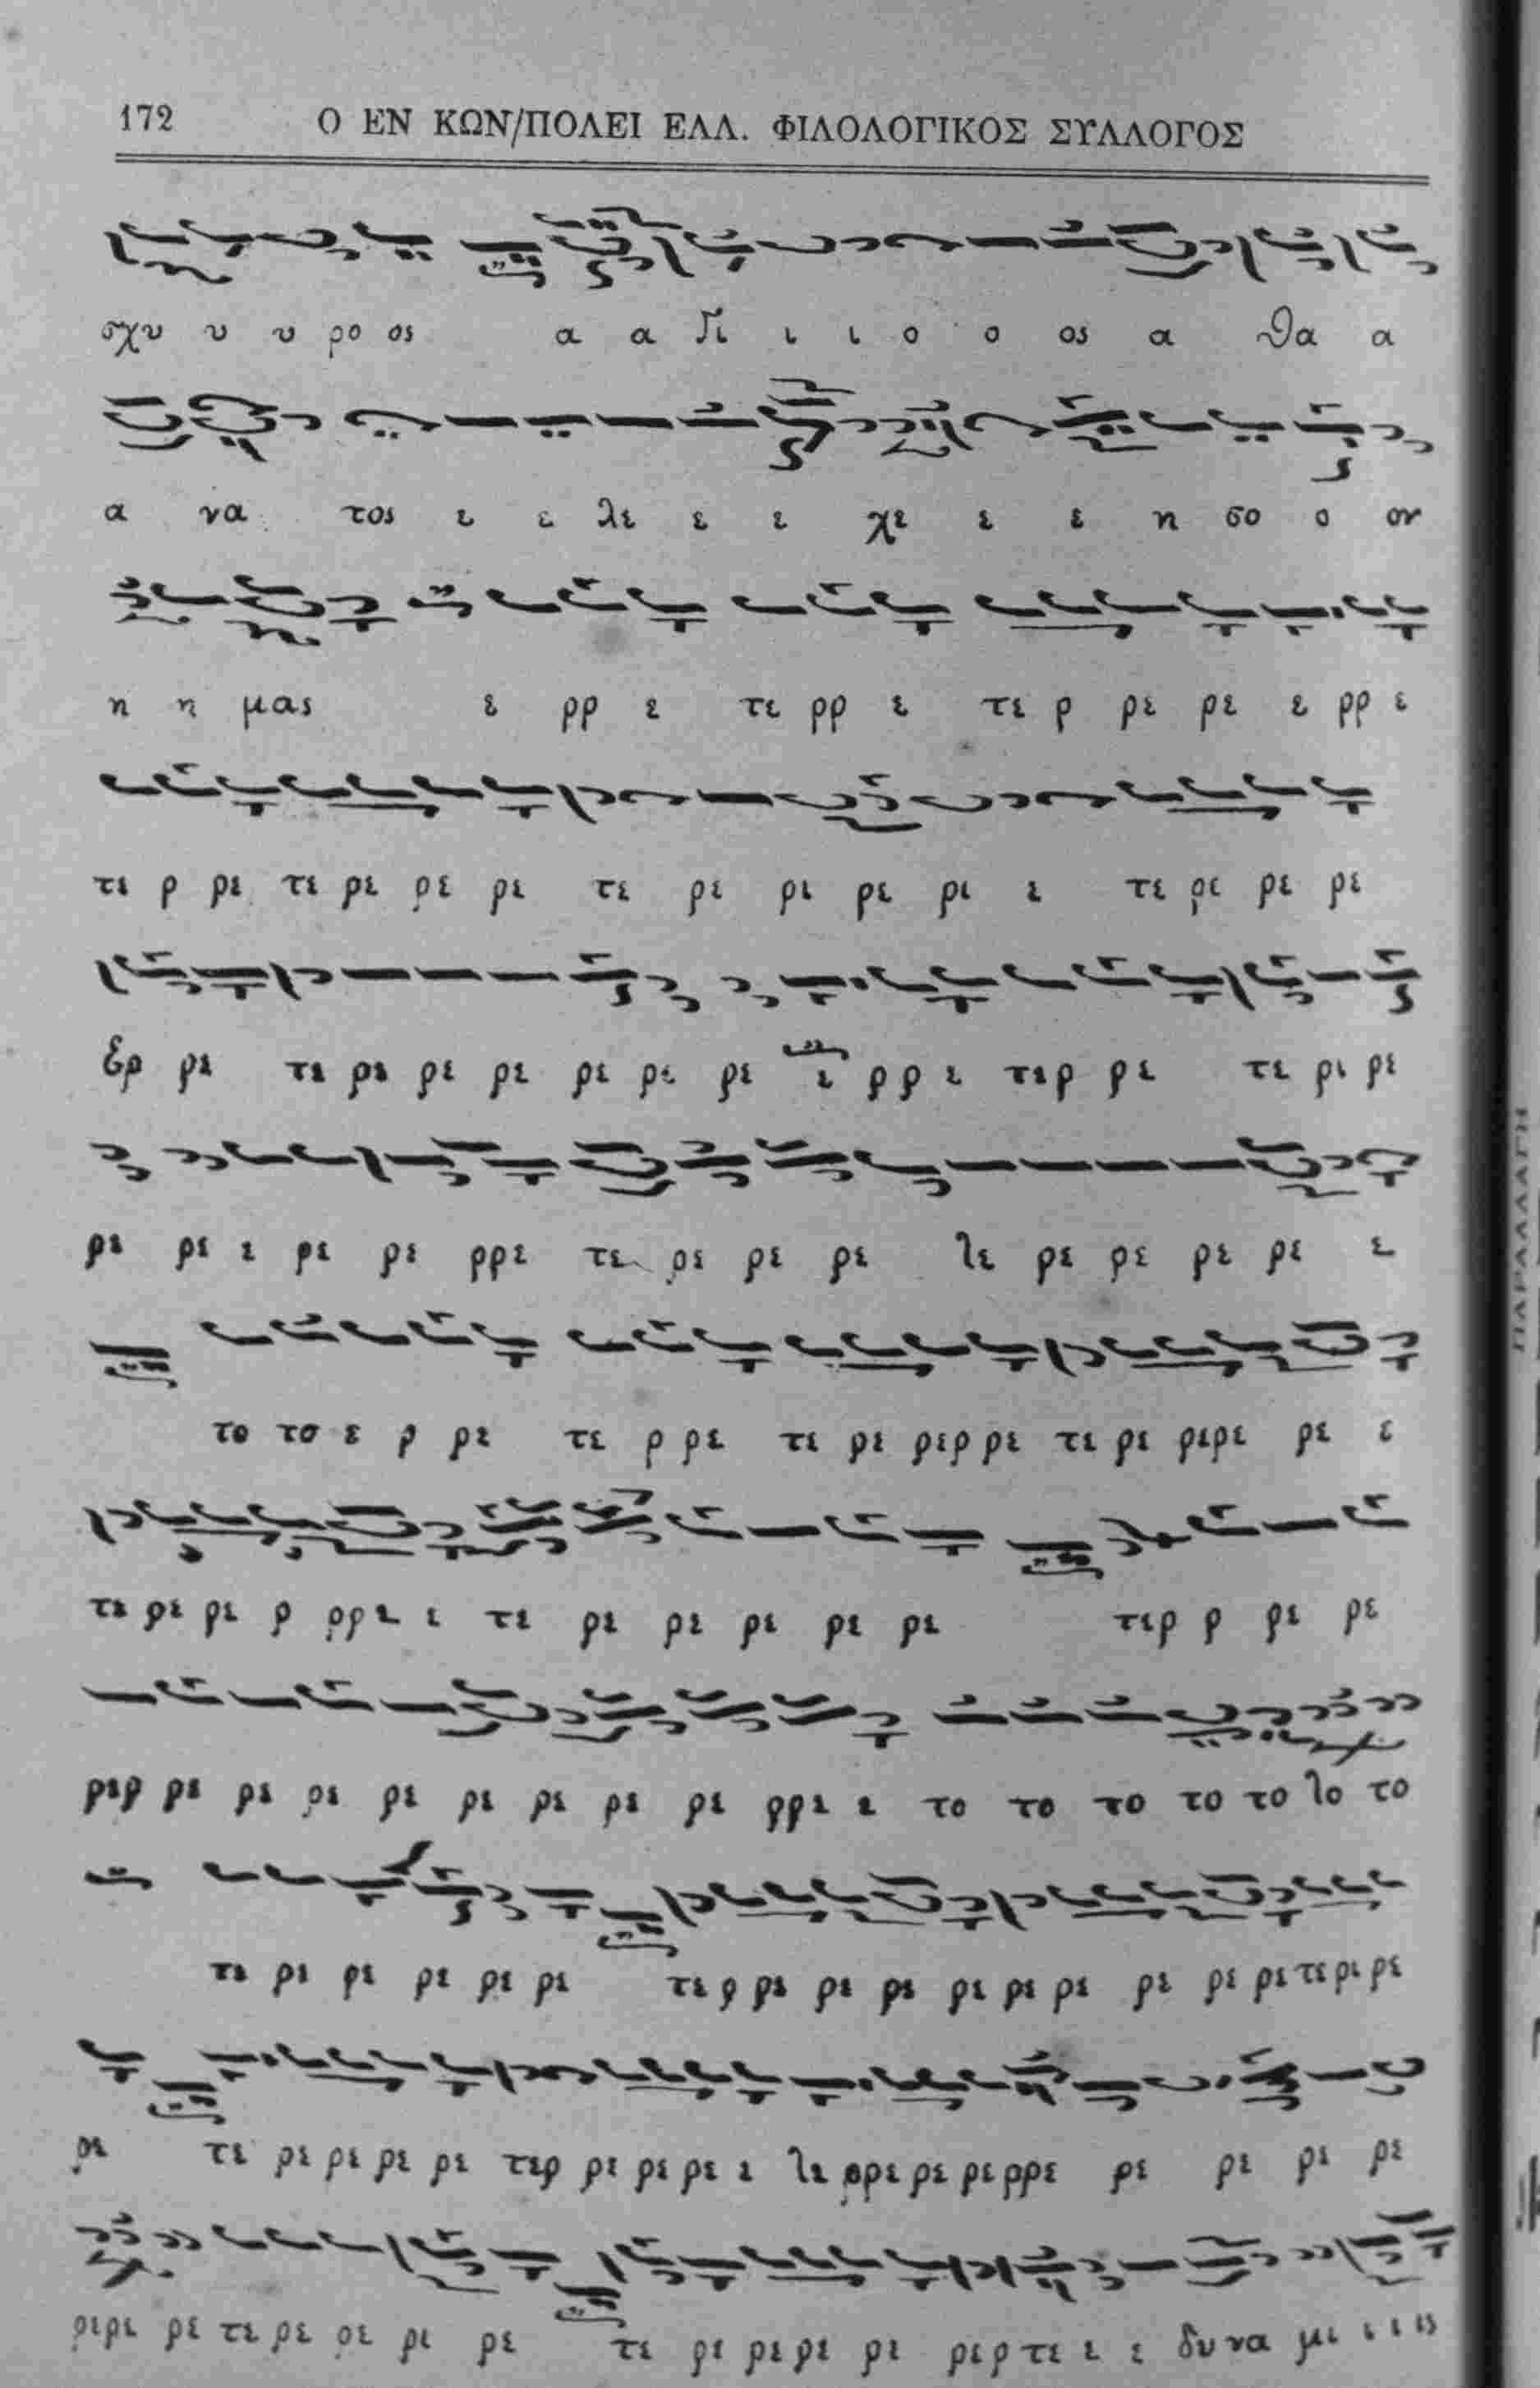 172 Ο ΕΝ ΚΩΝ/ΠΟΛΕΙ ΕΛΛ. ΦΙΛΟΛΟΓΙΚΟΣ ΣΥΛΛΟΓΟΣ
σχυ υ υ ρο ος α α Γι ι ι ο ο ος α θα α
α να τος ε ε λε ε ε χε ε ε η σο ο ον
η η μας ε ρρ ε τε ρρ ε τε ρ ρε ρε ε ρρ ε
τε ρ ρε τε ρε ρε ρε τε ρε ρε ρε ρε ε τε ρε ρε ρε
ερ ρε τε ρε ρε ρε ρε ρε ρε ε ρ ρ ε τερ ρε τε ρε ρε
ρε ρε ε ρε ρε ρρε τε ρε ρε ρε λε ρε ρε ρε ρε ε
το το ε ρ ρε τε ρ ρε τε ρε ρερ ρε τε ρε ρερε ρε ε
τε ρε ρε ρ ρρε ε τε ρε ρε ρε ρε ρε τερ ρ ρε ρε
ρερ ρε ρε ρε ρε ρε ρε ρε ρε ρρε ε το το το το το λο το
τε ρε ρε ρε ρε ρε τε ρ ρε ρε ρε ρε ρε ρε ρε ρε ρε τε ρε ρε
ρε τε ρε ρε ρε ρε τερ ρε ρε ρε ε λε ρρε ρε ρε ρρε ρε ρε ρε ρε
ρερε ρε τε ρε ρε ρε ρε τε ρε ρε ρε ρε ρερ τε ε ε δυ να με ι ι ις
ΠΑΡΑΛΛΑΓΗ